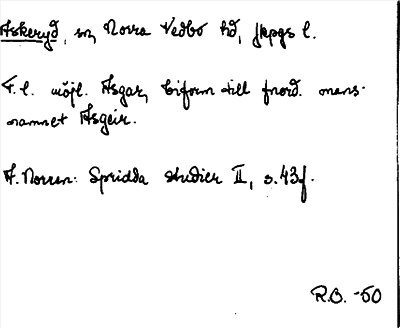 Askeryd, sn, Norra Vedbo hd, Jkpgs l.
F.l. möjl. Asgar, biform till fnord. mans-
namnet Asgeir.
A. Noreen: Spridda studier II, s. 43 f.
R.O. -50